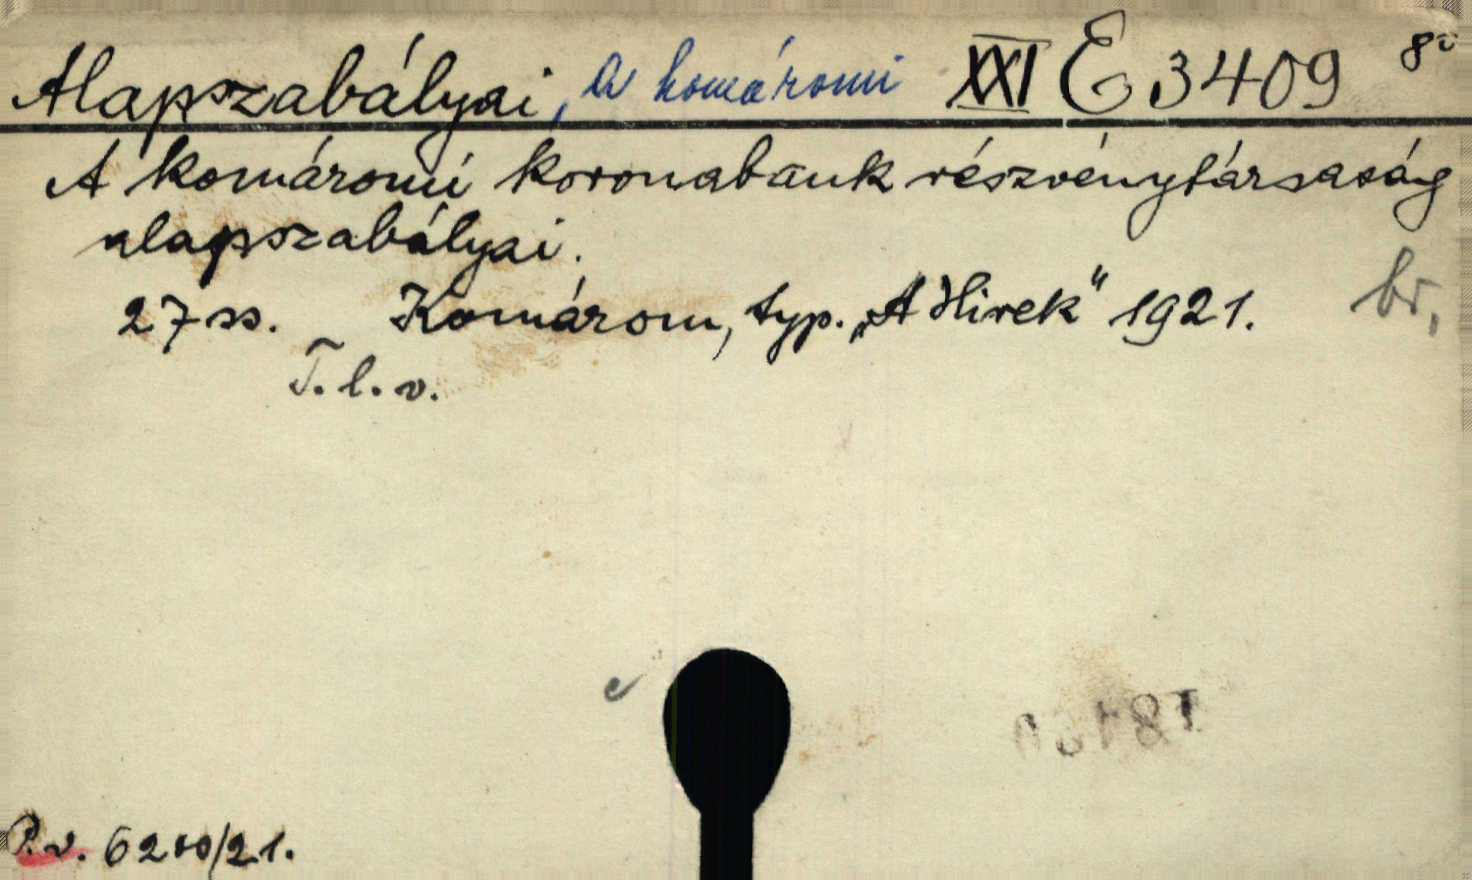 Alapszabályai, a komáromi XXI E 3409 8°
A komáromi koronabank részvénytársaság
alapszabályai.
27 ss. Komárom, typ. „A Hirek" 1921. br.
T. l. v.
P. v. 6200/21.